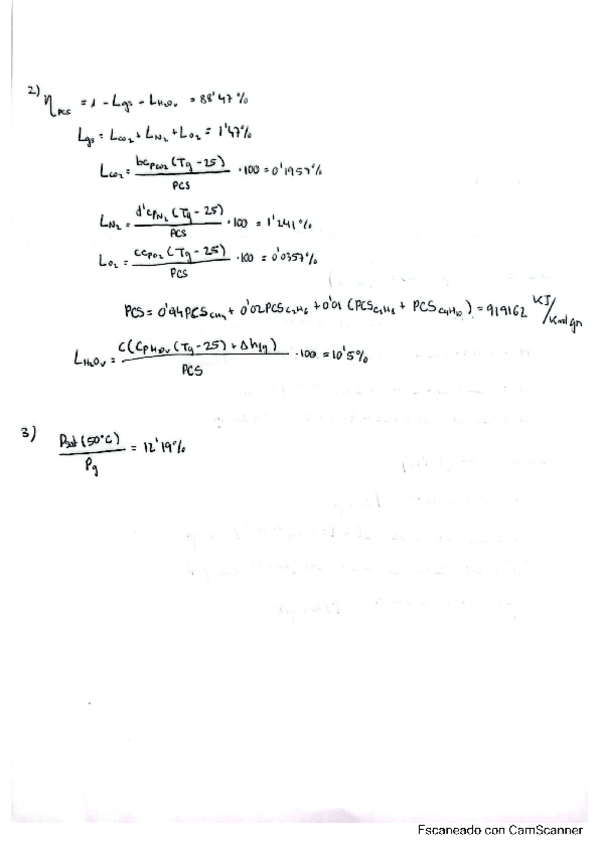 2) η PCS = 1 - Lgs - LH2Ov = 88'47%
Lgs = LCO2 + LN2 + LO2 = 1'47%
LCO2 = bcpCO2 (Tg - 25) / PCS · 100 = 0'1957%
LN2 = d'cpN2 (Tg - 25) / PCS · 100 = 1'241%
LO2 = ccpO2 (Tg - 25) / PCS · 100 = 0'0357%
PCS = 0'94 PCS CH4 + 0'02 PCS C2H6 + 0'01 (PCS C3H8 + PCS C4H10) = 919162 KJ/Kmol gn
LH2Ov = C(CpH2Ov (Tg - 25) + Δhfg) / PCS · 100 = 10'5%
3) Psat (50°C) / Pg = 12'19%
Escaneado con CamScanner